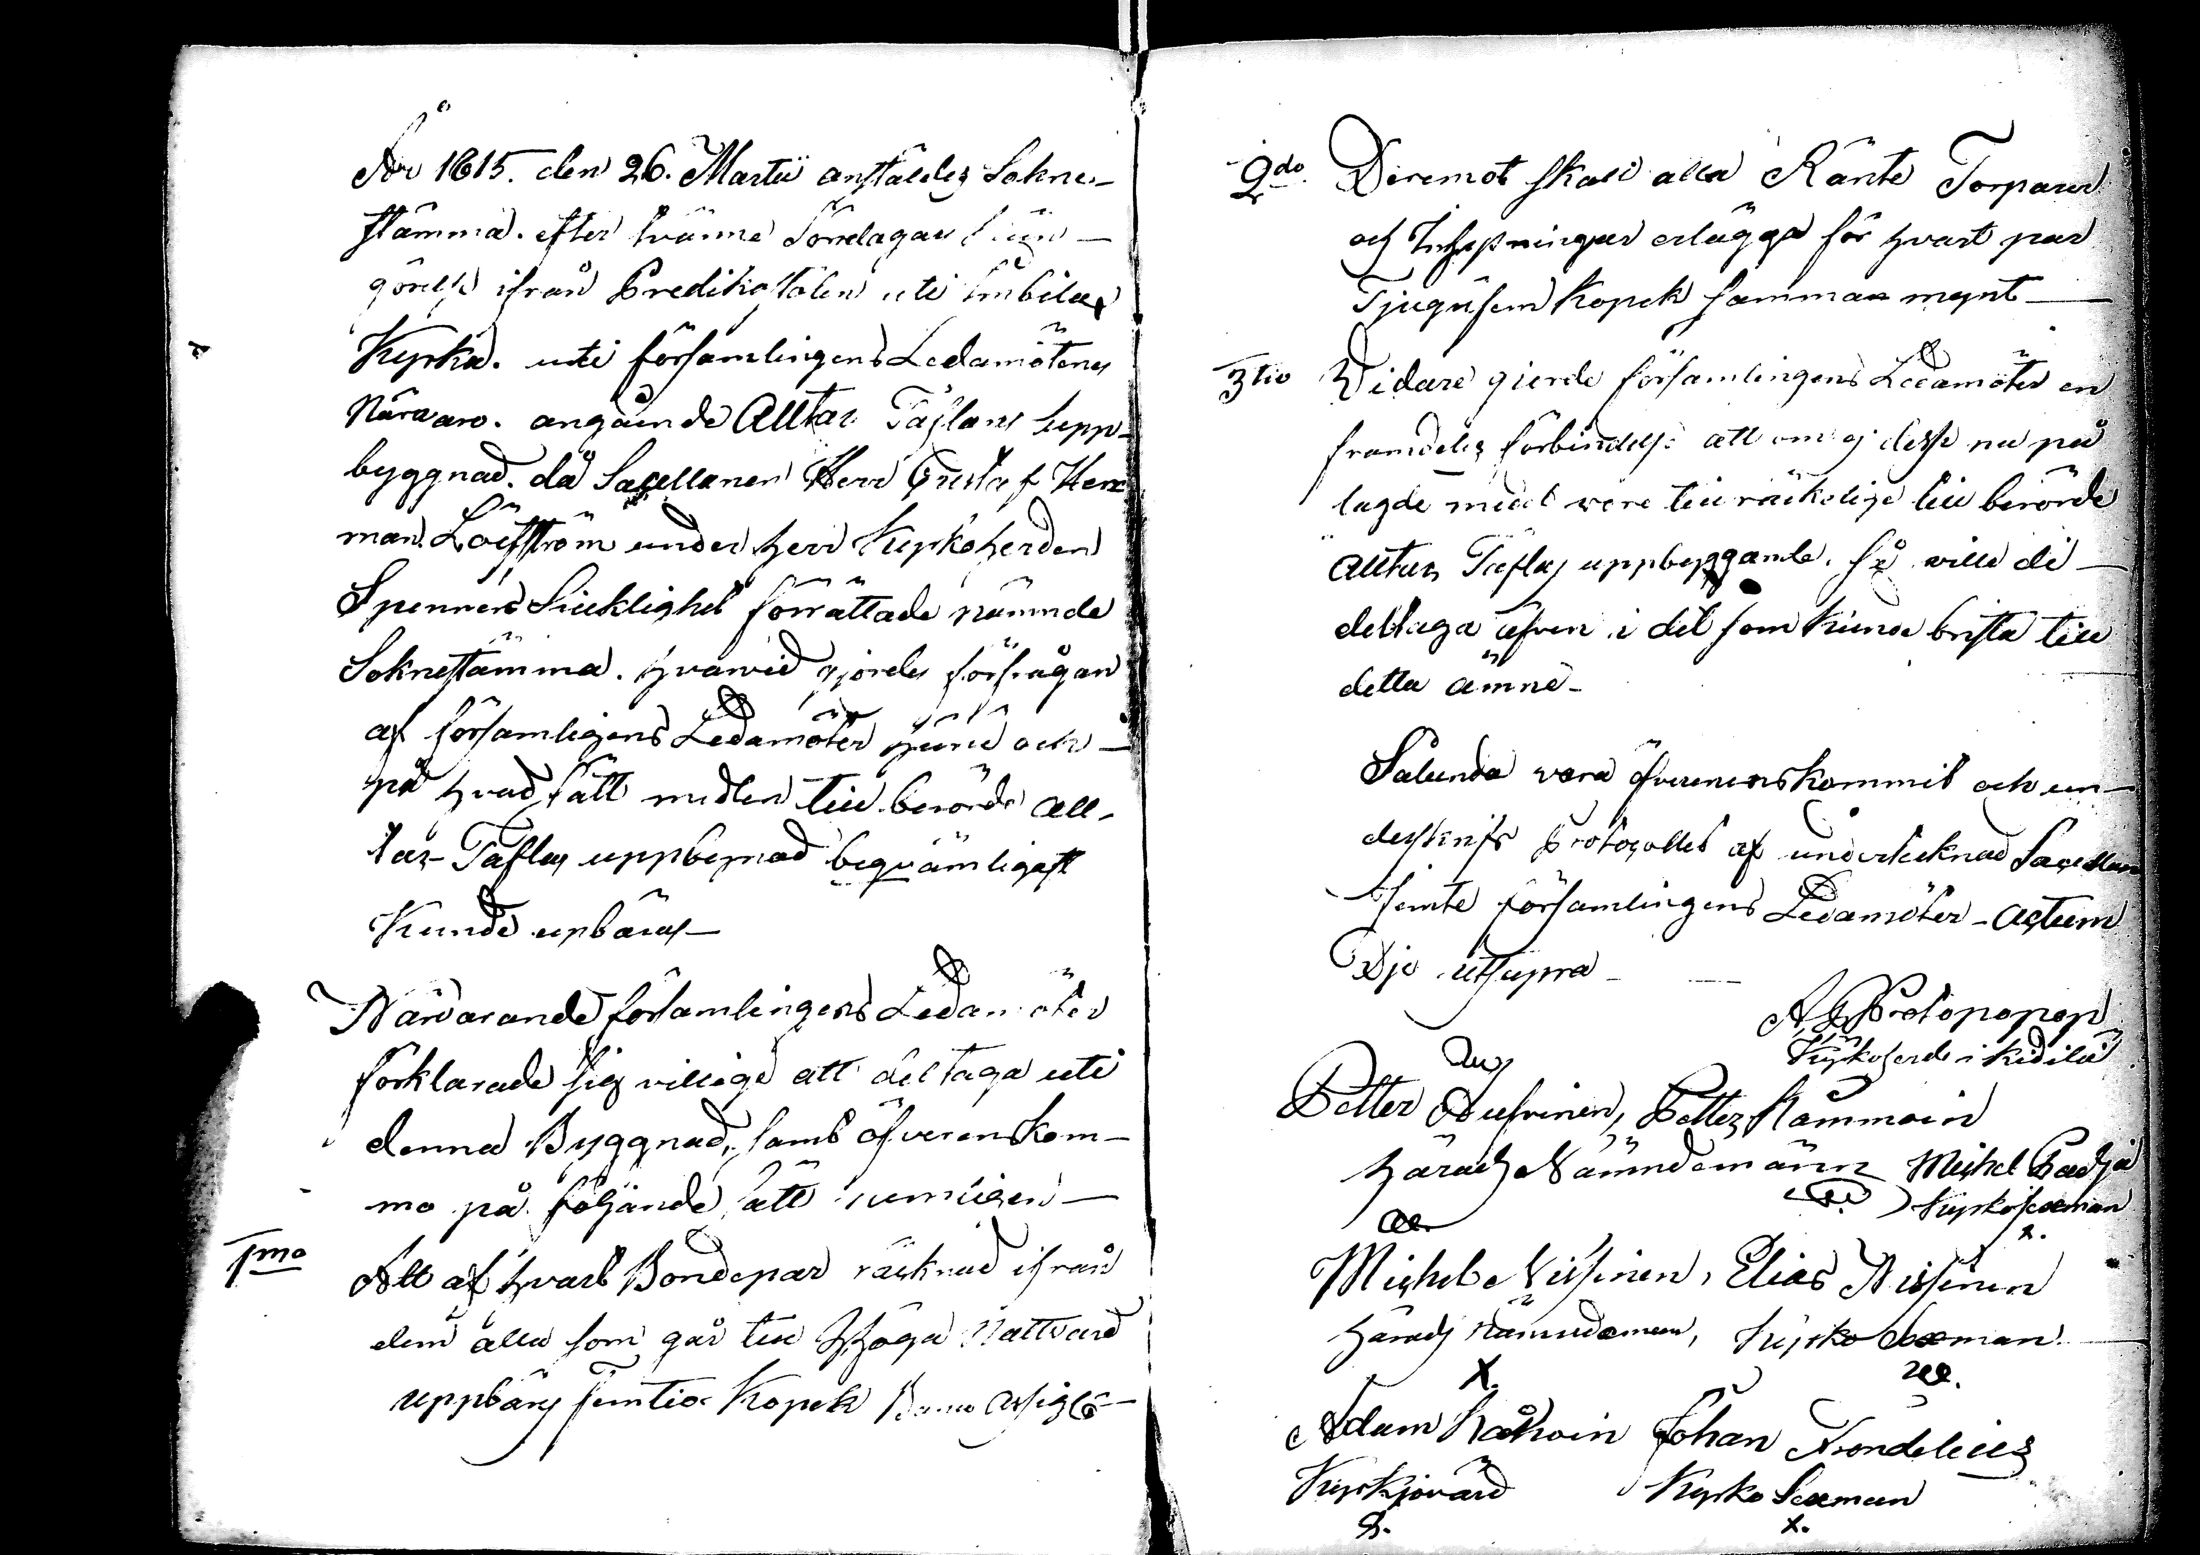 År 1815. den 26. Martii anstäldes Sokne-
stämma. efter tvänne Söndagar kun-
görelse ifrån Predikostolen uti Impilax
Kyrka. uti församlingens Ledamöters
Närwaro. angående Alltar Taflans upp-
byggnad. då Sacellanen Herr Gustaf Her
man Löfström under Herr Kyrkoherden
Sjuklighet förrättade nämnde
Soknestämma. hvarvid gjordes förfrågan
af församligens Ledamöter huru och
på hvad sätt medlen till berörde All-
tar-Taflas uppbygnad beqvämligast
Kunde upbäras
Närvarande församlingens Ledamöter
förklarade sig villige att deltaga uti
denna Byggnad, samt öfverenskom-
mo på följande sätt nemligen
1mo Att af hvart Bondepar räcknad ifrån
dem alla som går till H. Höga Nattvard
uppbäres femtio Kopek Banco Assigts
2do Deremot skall alla Ränte Torpare
och Inhysningar erlägga för hvart par
Tjugufem Kopek samma mynt
3tio Vidare gjorde församlingens Ledamöter en
framdeles förbindelse att om ej desse nu på
lagde medel vore tillräckelige till berörde
Alltar Taflas uppbyggande. så ville de
deltaga äfven i det som kunde brista till
detta ämne-
Sålunda vara öfverenskommit och un-
derskrifs Protocollet af undertecknad Sacellan
jemte församlingens Ledamöter - Actum
Die ut supra
Protopopop
Kyrkoherde i Kidilä
Petter Petter Hämmöin
härads Nämndemänn Michel
Kyrkosexman
x.
Michel Nissinen, Elias Nissinen
härads Nämndeman, Kyrko Sexman
X.
Adam Johan Arondelius
Kyrkjovärd Kyrko Sexman
x.